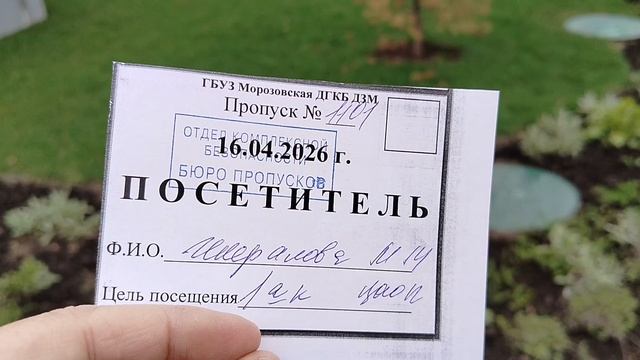 ГБУЗ Морозовская ДГКБ ДЗМ
Пропуск № 1101
ОТДЕЛ КОМПЛЕКСНОЙ
БЕЗОПАСНОСТИ
16.04.2026 г.
БЮРО ПРОПУСКОВ
ПОСЕТИТЕЛЬ
Ф.И.О.
Цель посещения